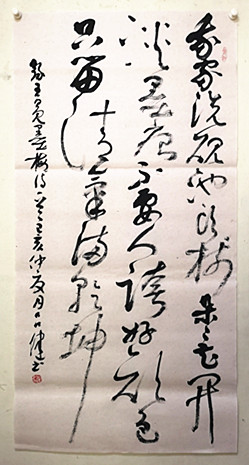 我家洗砚池头树朵々花开
淡墨痕不要人誇好颜色
只留清氣满乾坤
王冕墨梅诗 亥仲夏月 书